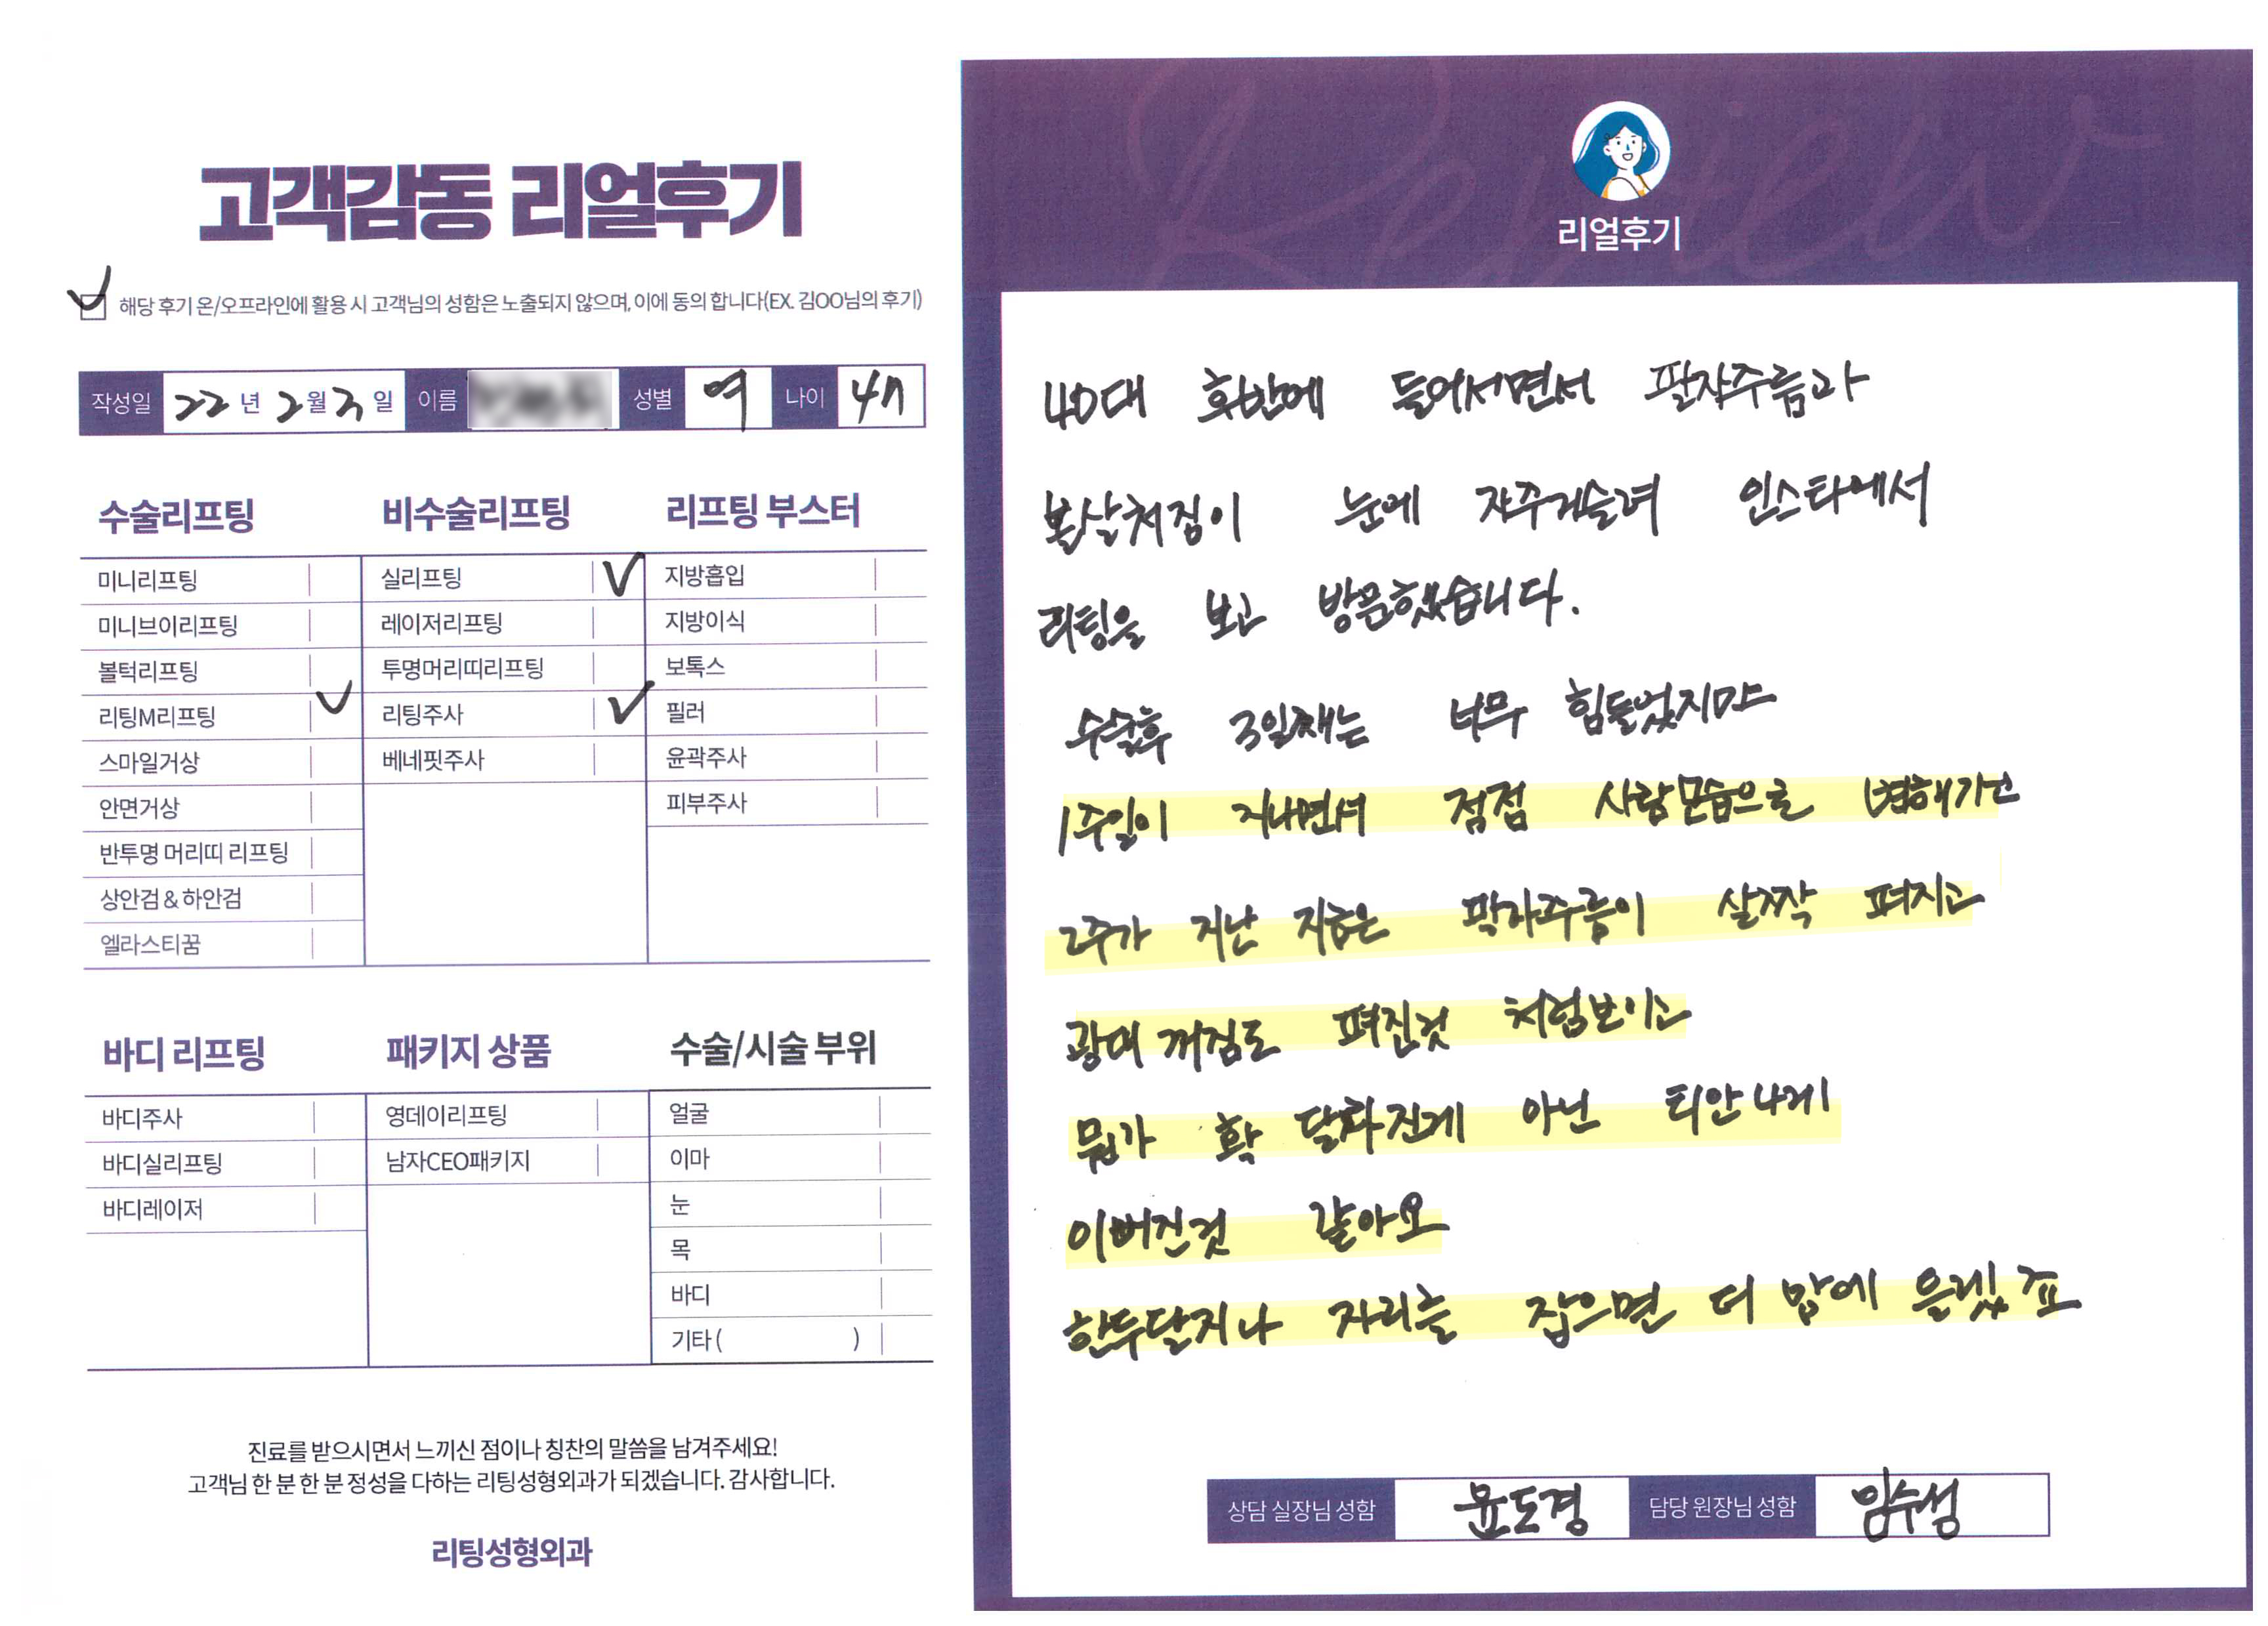 고객감동 리얼후기
해당 후기 온/오프라인에 활용 시 고객님의 성함은 노출되지 않으며, 이에 동의 합니다(EX. 김OO님의 후기)
작성일 22년 2월 3일 이름 성별 여 나이 47
수술리프팅
미니리프팅
미니브이리프팅
볼턱리프팅
리팅M리프팅
스마일거상
안면거상
반투명 머리띠 리프팅
상안검 & 하안검
엘라스티꿈
비수술리프팅
실리프팅
레이저리프팅
투명머리띠리프팅
리팅주사
베네핏주사
리프팅 부스터
지방흡입
지방이식
보톡스
필러
윤곽주사
피부주사
바디 리프팅
바디주사
바디실리프팅
바디레이저
패키지 상품
영데이리프팅
남자CEO패키지
수술/시술 부위
얼굴
이마
눈
목
바디
기타 ( )
진료를 받으시면서 느끼신 점이나 칭찬의 말씀을 남겨주세요!
고객님 한 분 한 분 정성을 다하는 리팅성형외과가 되겠습니다. 감사합니다.
리팅성형외과
Review
리얼후기
40대 후반에 들어서면서 팔자주름과
볼살처짐이 눈에 자주거슬려 인스타에서
리팅을 보고 방문했습니다.
수술후 3일째는 너무 힘들었지만
1주일이 지나면서 점점 사람모습으로 변해가고
2주가 지난 지금은 팔자주름이 살짝 펴지고
광대 꺼짐도 펴진것 처럼보이고
뭔가 확 달라진게 아닌 티안나게
이뻐진것 같아요
한두달지나 자리를 잡으면 더 맘에 들겠죠
상담 실장님 성함 윤도경 담당 원장님 성함 임수성